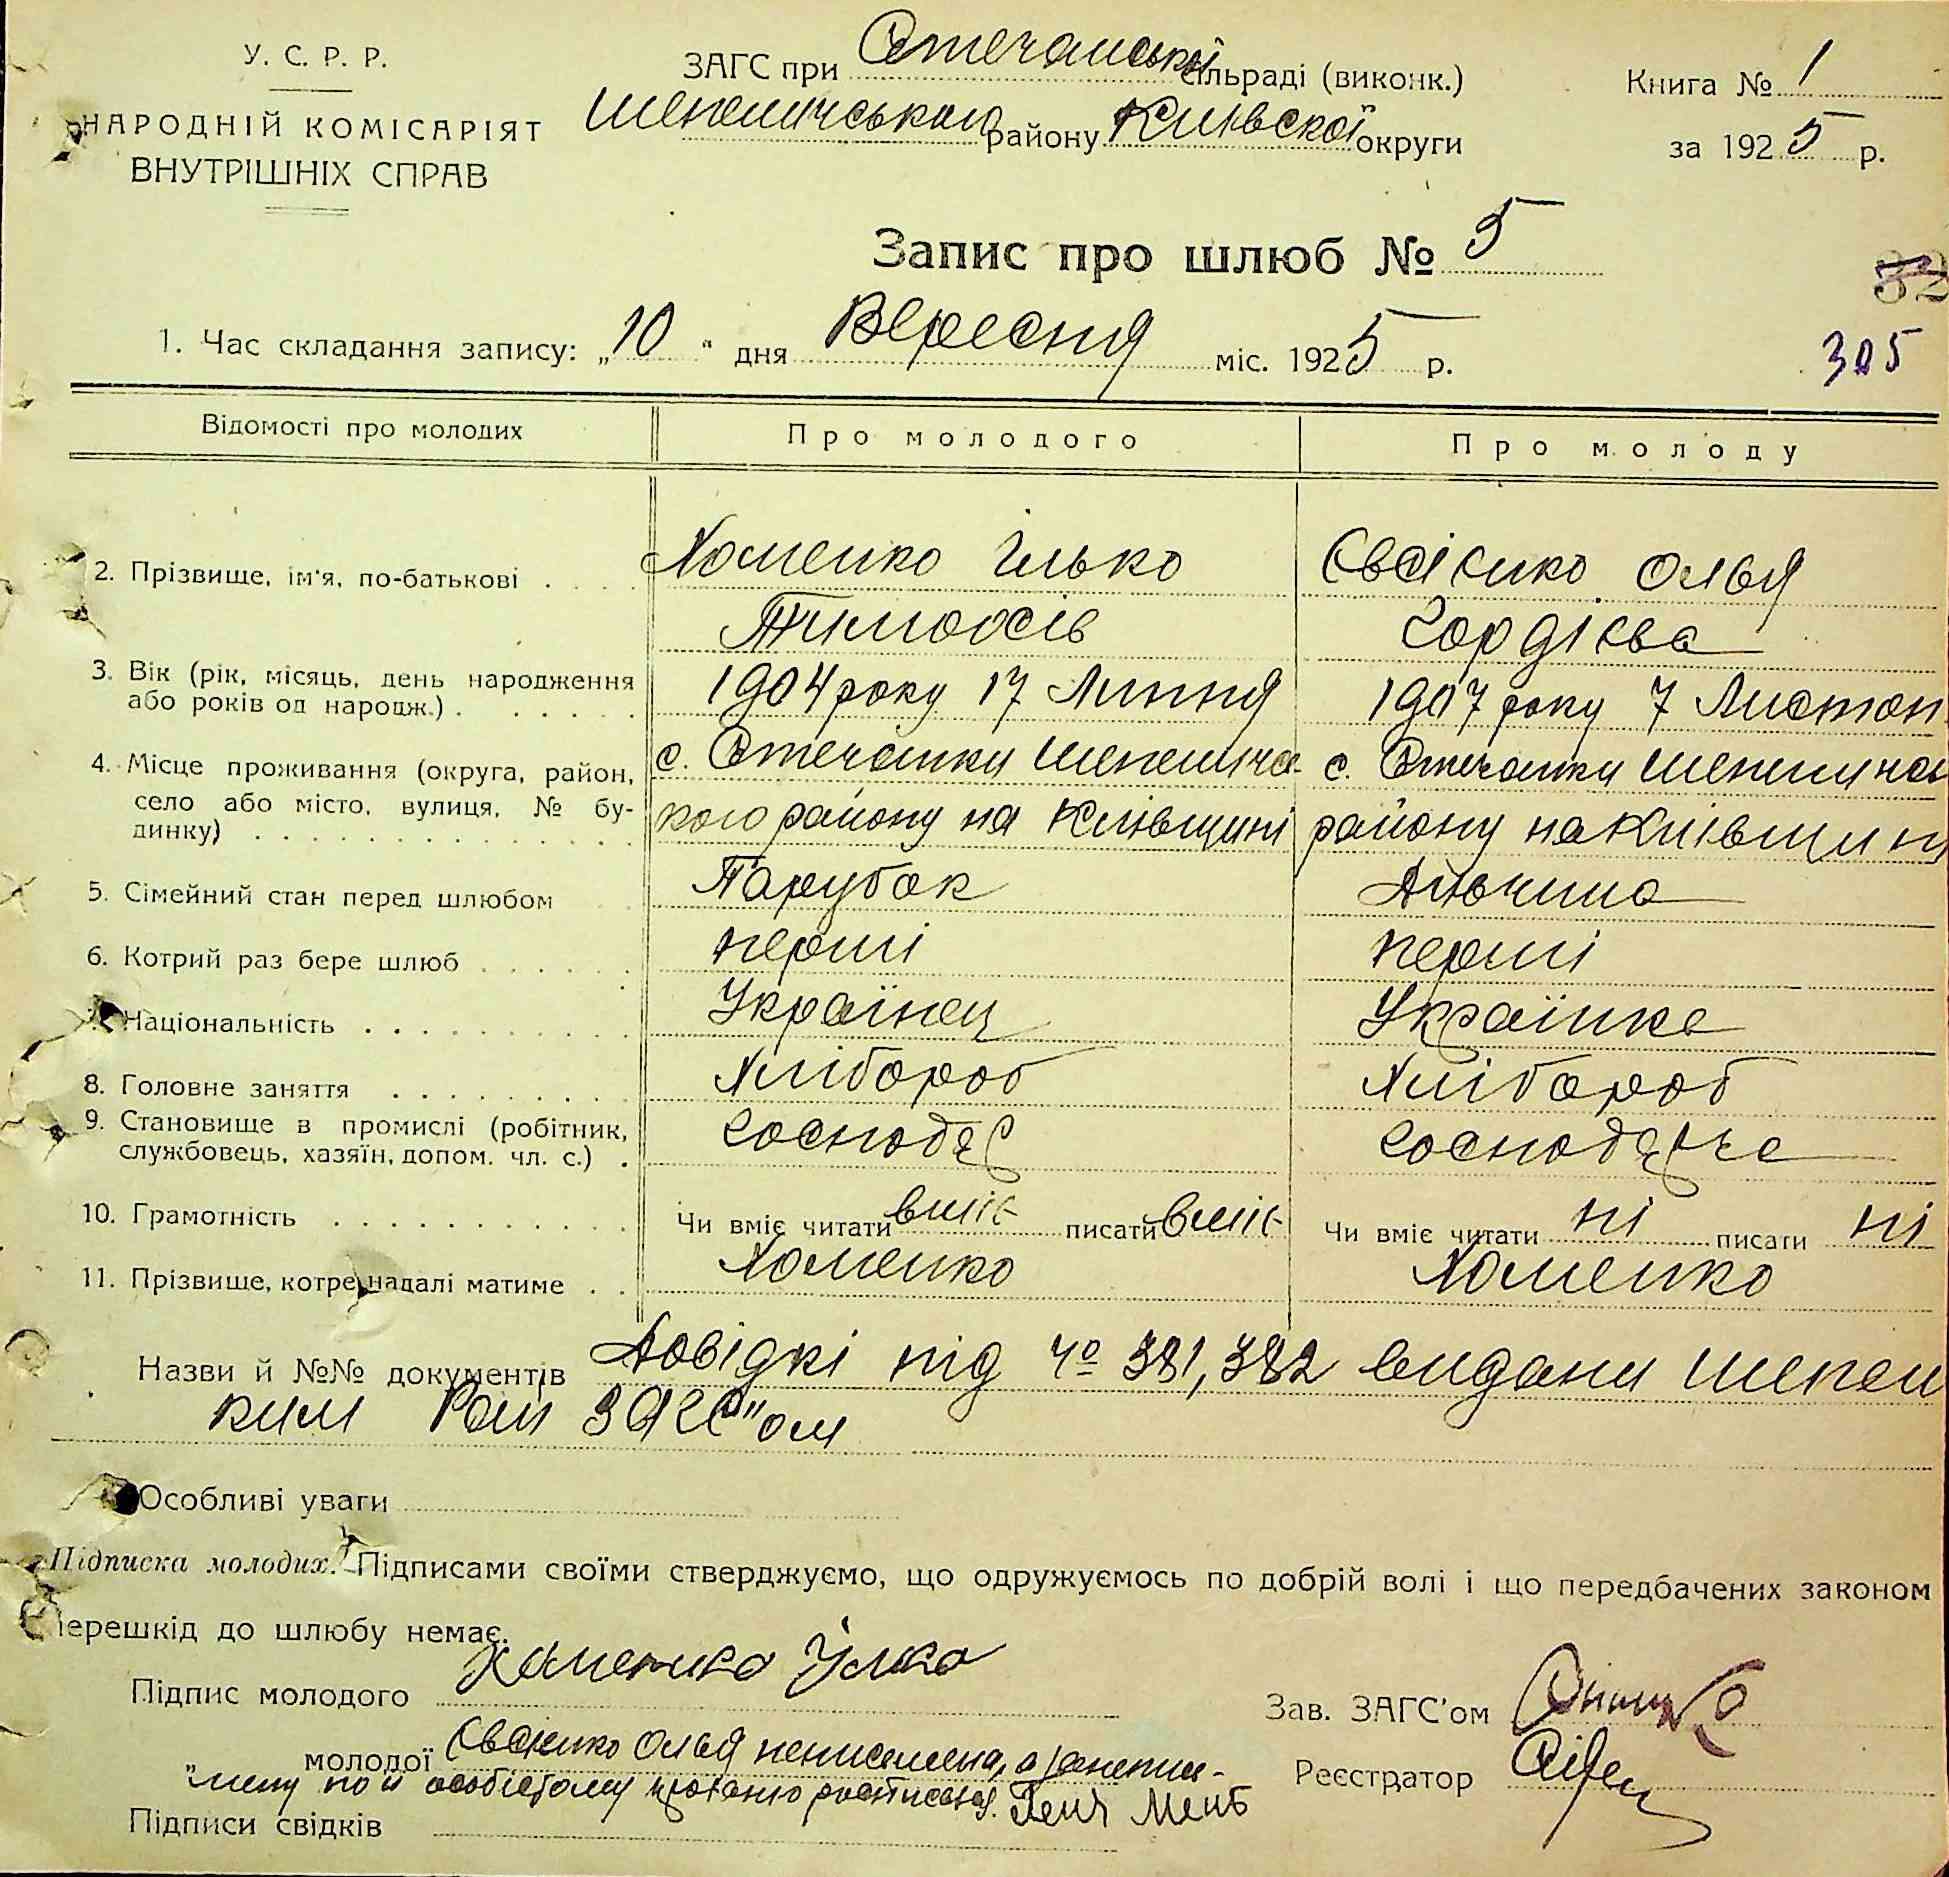 У. С. Р. Р.
НАРОДНІЙ КОМІСАРІЯТ
ВНУТРІШНІХ СПРАВ
ЗАГС при Стечанській сільраді (виконк.)
Шепеличського району Київської округи
Книга № 1
за 1925 р.
Запис про шлюб № 5
32
305
1. Час складання запису: „10" дня Вересня міс. 1925 р.
Відомості про молодих Про молодого Про молоду
2. Прізвище, ім'я, по-батькові . Хоменко Ілько Євсієнко Ольга
Тимофіїв Гордієва
3. Вік (рік, місяць, день народження або років од народж.) . 1904 року 17 Липня 1907 року 7 Листоп
4. Місце проживання (округа, район, с. Стечанки Шепеличс- с. Стечанки Шепеличсь
село або місто, вулиця, № будинку) кого району на Київщині району на Київщині
5. Сімейний стан перед шлюбом Парубок Дівчина
6. Котрий раз бере шлюб перші перші
7. Національність Українец Українка
8. Головне заняття Хлібороб Хлібороб
9. Становище в промислі (робітник, службовець, хазяїн, допом. чл. с.) . Господар Господарка
10. Грамотність Чи вміє читати вміє писати вміє Чи вміє читати ні писати ні
11. Прізвище, котре надалі матиме . . Хоменко Хоменко
Назви й №№ документів Довідкі під чо 381, 382 видани Шепел
ким Рай ЗАГС"ом
Особливі уваги
Підписка молодих. Підписами своїми стверджуємо, що одружуємось по добрій волі і що передбачених законом
перешкід до шлюбу немає.
Підпис молодого Хоменко Ілко
Зав. ЗАГС'ом
молодої Євсієнко Ольга неписьмена, а
Реєстратор
Підписи свідків